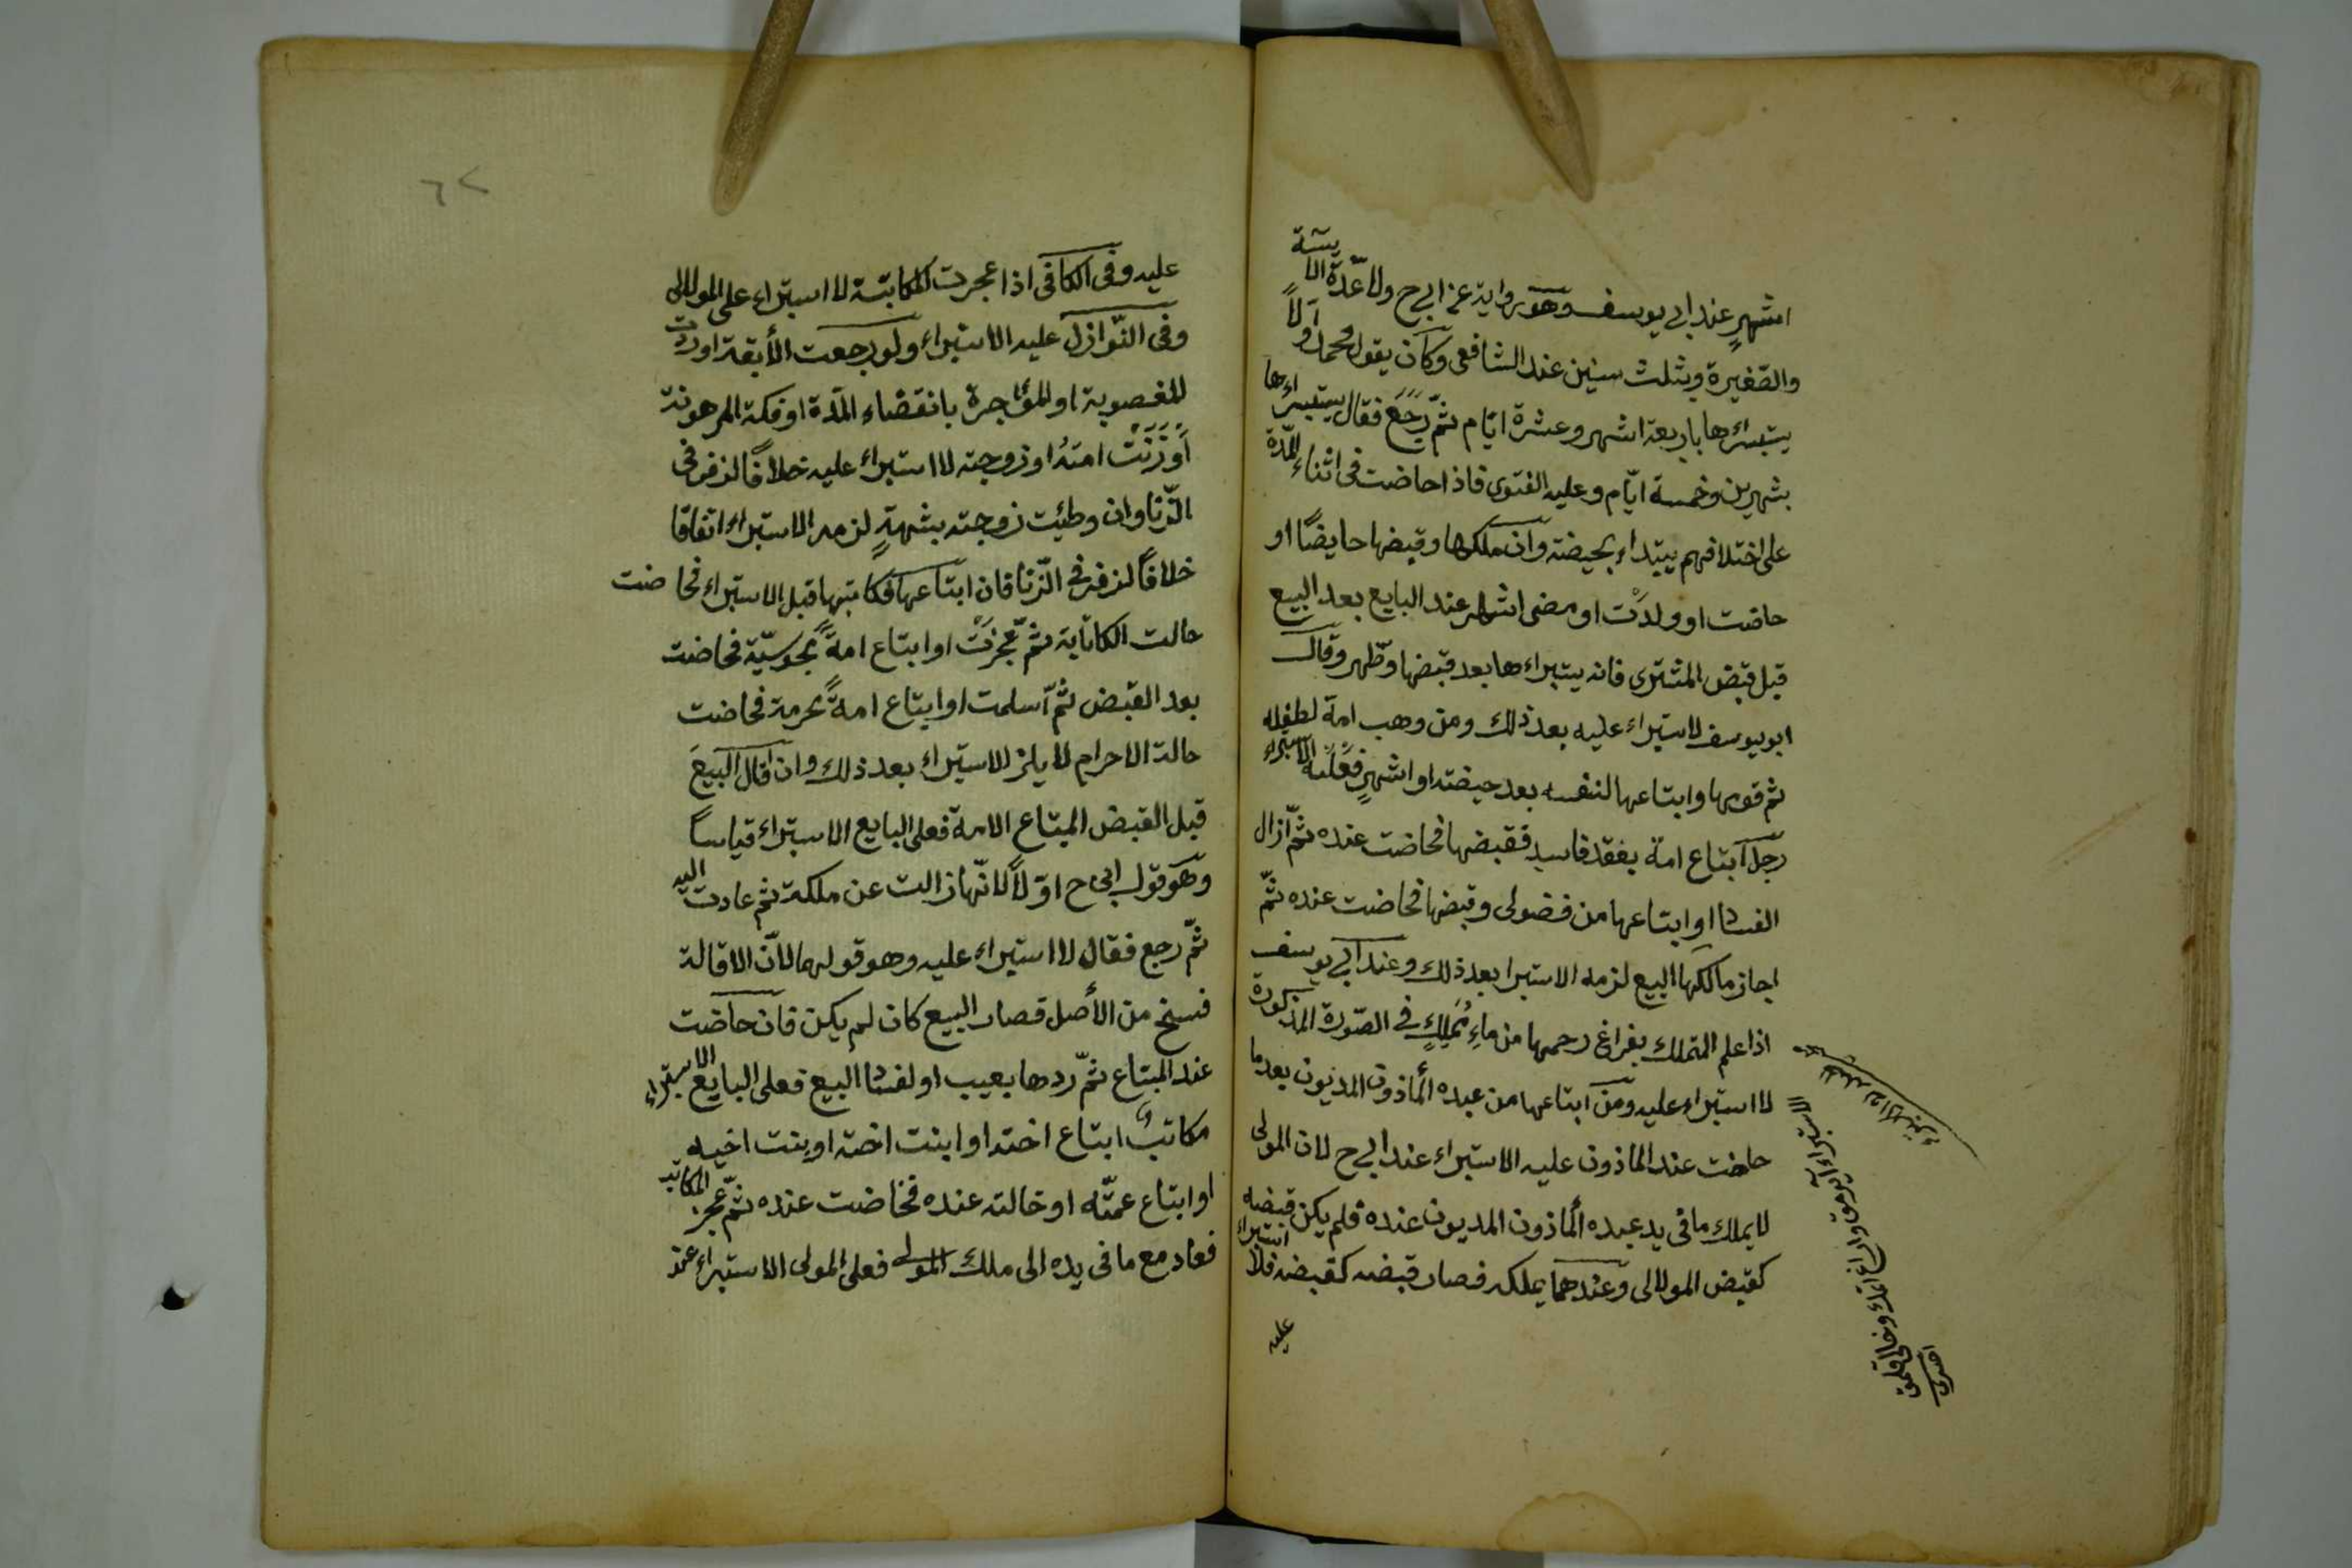 اشهرٍ عند ابى يوسف وهو رواية عن ابى ح ولا عدّة الآيسة
والصّغيرة وبثلث سنين عند الشافعى وكان يقول محمد اوّلاً
يستبراءها باربعة اشهر وعشرة ايّام ثمّ رَجَعَ فقال يستبراءها
بشهرين وخمسة ايّام وعليه الفتوى فاذا حاضت فى اثناء المدّة
على اختلافهم يبتداء بحيضة وان ملكها وقبضها حايضًا او
حاضت او ولدَت او مضى اشهر عند البايع بعد البيع
قبل قبض المشترى فانه يستبراءها بعد قبضها وطّهر وقال
ابو يوسف لاستبراء عليه بعد ذلك ومن وهب امة لطفله
ثم قومها وابتاعها لنفسه بعد حيضة او اشهرٍ فَعَلَيه الاستبراء
رجل ابتاع امة بعقد فاسد فقبضها فحاضت عنده ثمّ ازال
الفسا او ابتاعها من فضولى وقبضها فحاضت عنده ثمّ
اجاز مالكها البيع لزمه الاستبرا بعد ذلك وعند ابى يوسف
اذا علم المتملك بفراغ رحمها من ماءِ مُمَلِكٍ فى الصّورة المذكورة
لا استبراء عليه ومن ابتاعها من عبده المأذون المديون بعدما
حاضت عند الماذون عليه الاستبراء عند ابى ح لان المولى
لا يملك ما فى يد عبده المأذون المديون عنده فلم يكن قبضه
كقبض الموالى وعندهما يملكه فصار قبضه كقبضه فلا استبراء
عليه
عليه وفى الكافى اذا عجرت المكاتبة لا استبراء على الموالى
وفى النّوازل عليه الاستبراء ولو رجعت الأبقة او ردت
المغصوبة او المؤاجرة بانقضاء المدّة او فكة المرهونة
اَوزَنَتْ امتهُ او زوجته لا استبراء عليه خلافًا لزفر فى
الزّنا وان وطئت زوجته بشهةٍ لزمه الاستبراء اتفاقا
خلافًا لزفر فى الزّنا فان ابتاعها فكاتبها قبل الاستبراء فحاضت
حالت الكاتابة ثمّ عجّزتْ او ابتاع امةً مجوسيّة فحاضت
بعد القبض ثمّ اسلمت او ابتاع امةً محرمة فحاضت
حالة الاحرام لا يلزم الاستبراء بعد ذلك وان اقال البيعَ
قبل القبض المبتاع الامة فعلى البايع الاستبراء قياساً
وهو قول ابى ح اوّلاً لانّها زالت عن ملكه ثم عادت اليه
ثمّ رجع فقال لا استبراء عليه وهو قولهما لانّ الاقالة
فسخ من الأصل فصار البيع كان لم يكن فان حاضت
عند المبتاع ثمّ ردها بعيب او لفسا البيع فعلى البايع الاستبراء
مكاتب ابتاع اخته او ابنت اخته او بنت اخيه
او ابتاع عمّته او خالته عنده فخاضت عنده ثمّ عجز المكاتب
فعاد مع ما فى يده الى ملك المولى فعلى المولى الاستبراء عند